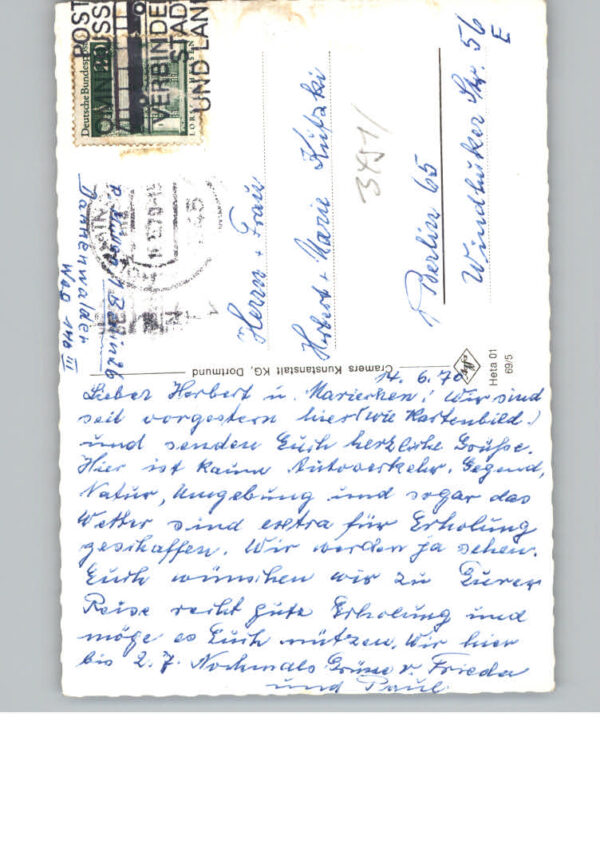 14. 6. 70
Lieber Herbert u. Mariechen! Wir sind
seit vorgestern hier (wie Kartenbild)
und senden Euch herzliche Grüße.
Hier ist kaum Autoverkehr. Gegend,
Natur, Umgebung und sogar das
Wetter sind extra für Erholung
geschaffen. Wir werden ja sehen.
Euch wünschen wir zu Eurer
Reise recht gute Erholung und
möge es Euch nützen. Wir hier
bis 2. 7. Nochmals Grüsse v. Frieda
und Paul.
POST
OMNIBUSSE
VERBINDEN
STADT
UND LAND
Deutsche Bundespost
LORSCH
1 Berlin 26
Dannenwalder
Weg 140 III
Herrn + Frau
Herbert + Marie
Berlin 65
Str. 56
E
3451/
Cramers Kunstanstalt KG, Dortmund
Heta 01
69/5